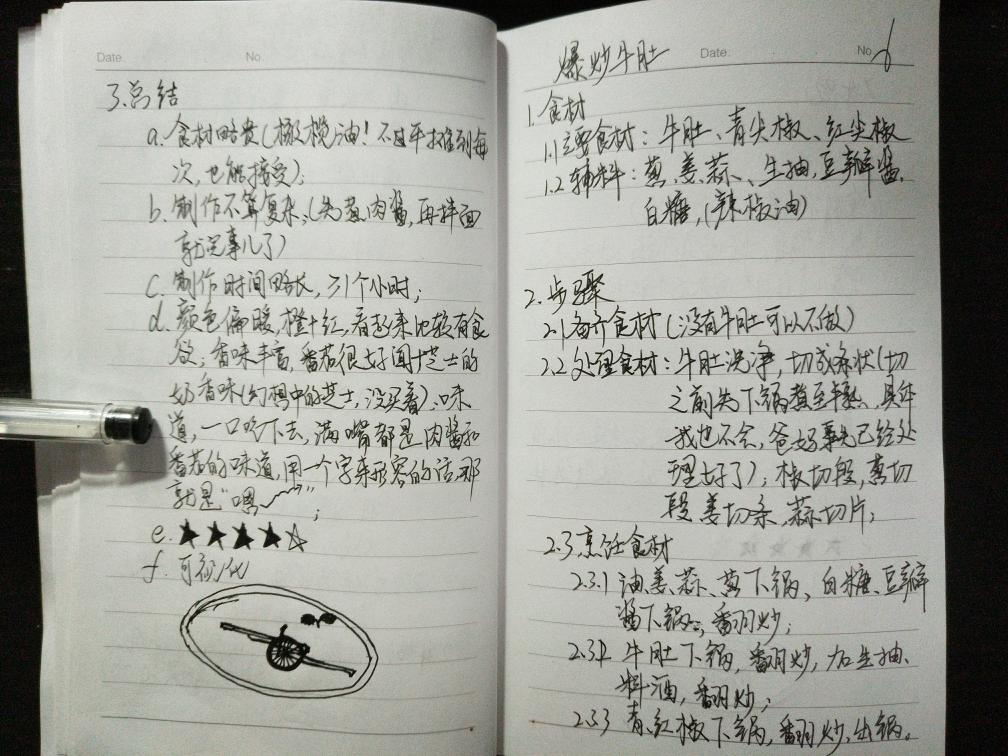 Date. No.
3.总结
a.食材略贵(橄榄油!不过平摊到每
次,也能接受);
b.制作不算复杂;(先煮肉酱,再拌面
就完事儿了)
c.制作时间略长,≥1个小时;
d.颜色偏暖,橙+红,看起来比较有食
欲;香味丰富,番茄很好闻+芝士的
奶香味(幻想中的芝士,没买着);味
道,一口吃下去,满嘴都是肉酱和
番茄的味道,用一个字来形容的话,那
就是"嗯~";
e.★★★★☆
f.可视化
爆炒牛肚 Date. No. 6
1.食材
1.1主要食材:牛肚、青尖椒、红尖椒
1.2辅料:葱、姜、蒜、生抽,豆瓣酱,
白糖,(辣椒油)
2.步骤
2.1备齐食材(没有牛肚可以不做)
2.2处理食材:牛肚洗净,切成条状(切
之前先下锅煮至半熟,具体
我也不会,爸妈事先已经处
理好了);椒切段,葱切
段,姜切条,蒜切片;
2.3烹饪食材
2.3.1 油、姜、蒜、葱下锅,白糖、豆瓣
酱下锅,翻炒;
2.3.2 牛肚下锅,翻炒,加生抽、
料酒,翻炒;
2.3.3 青、红椒下锅,翻炒,出锅。